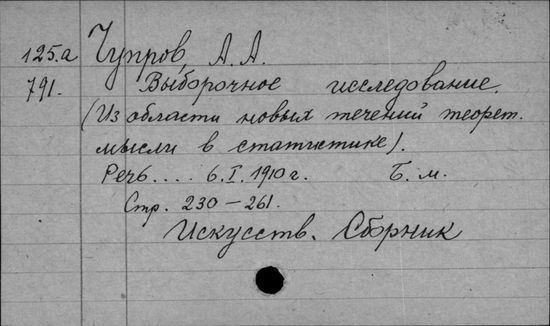 125.а Чупров, А. А.
791. Выборочное исследование.
(Из области новых течений теорет.
мысли в статистике).
Речь.... 6.I.1910 г. Б. м.
Стр. 230-261.
Искусств. Сборник